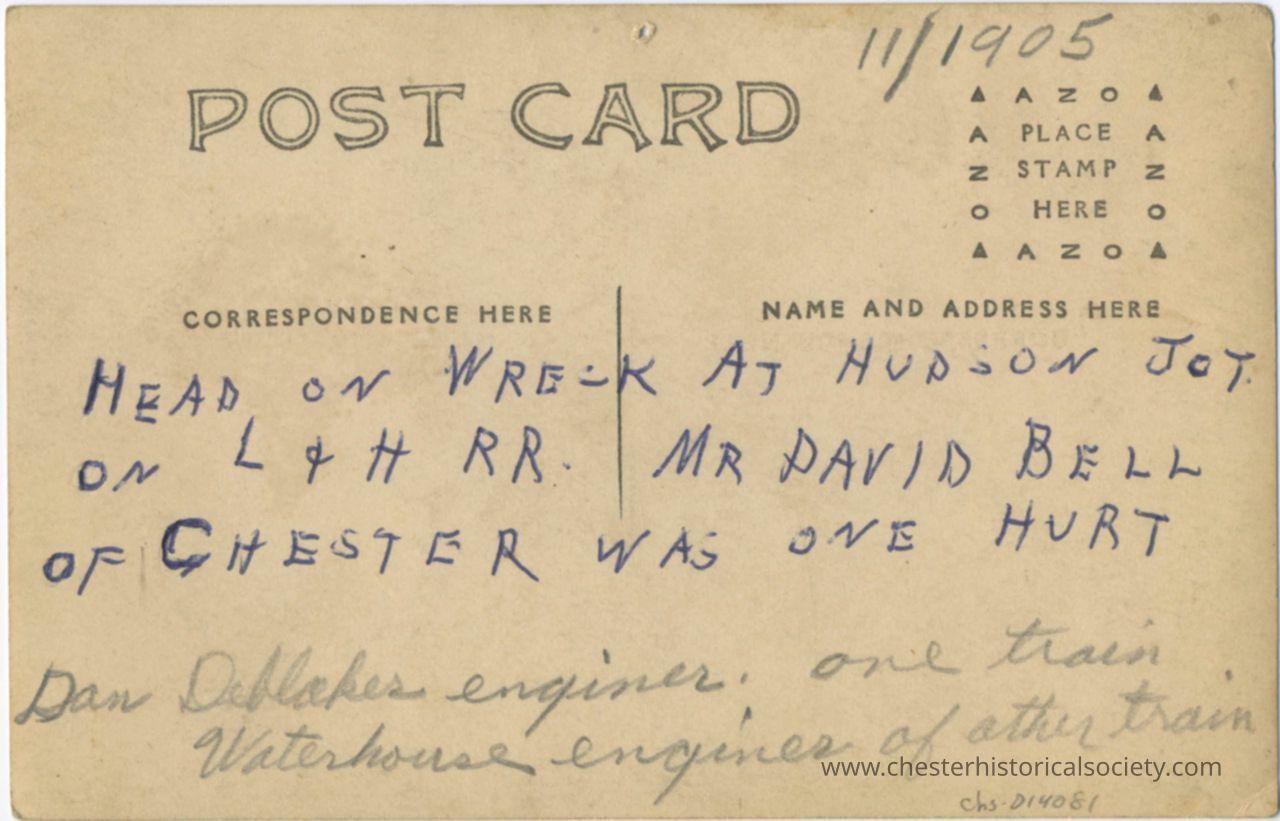 11/1905
POST CARD
▲ A Z O ▲
A PLACE A
Z STAMP Z
O HERE O
▲ A Z O ▲
CORRESPONDENCE HERE
NAME AND ADDRESS HERE
HEAD ON WRECK AT HUDSON JCT.
ON L & H RR. MR DAVID BELL
OF CHESTER WAS ONE HURT
Dan enginer. one train
Waterhouse enginer of other train
www.chesterhistoricalsociety.com
chs-D14081